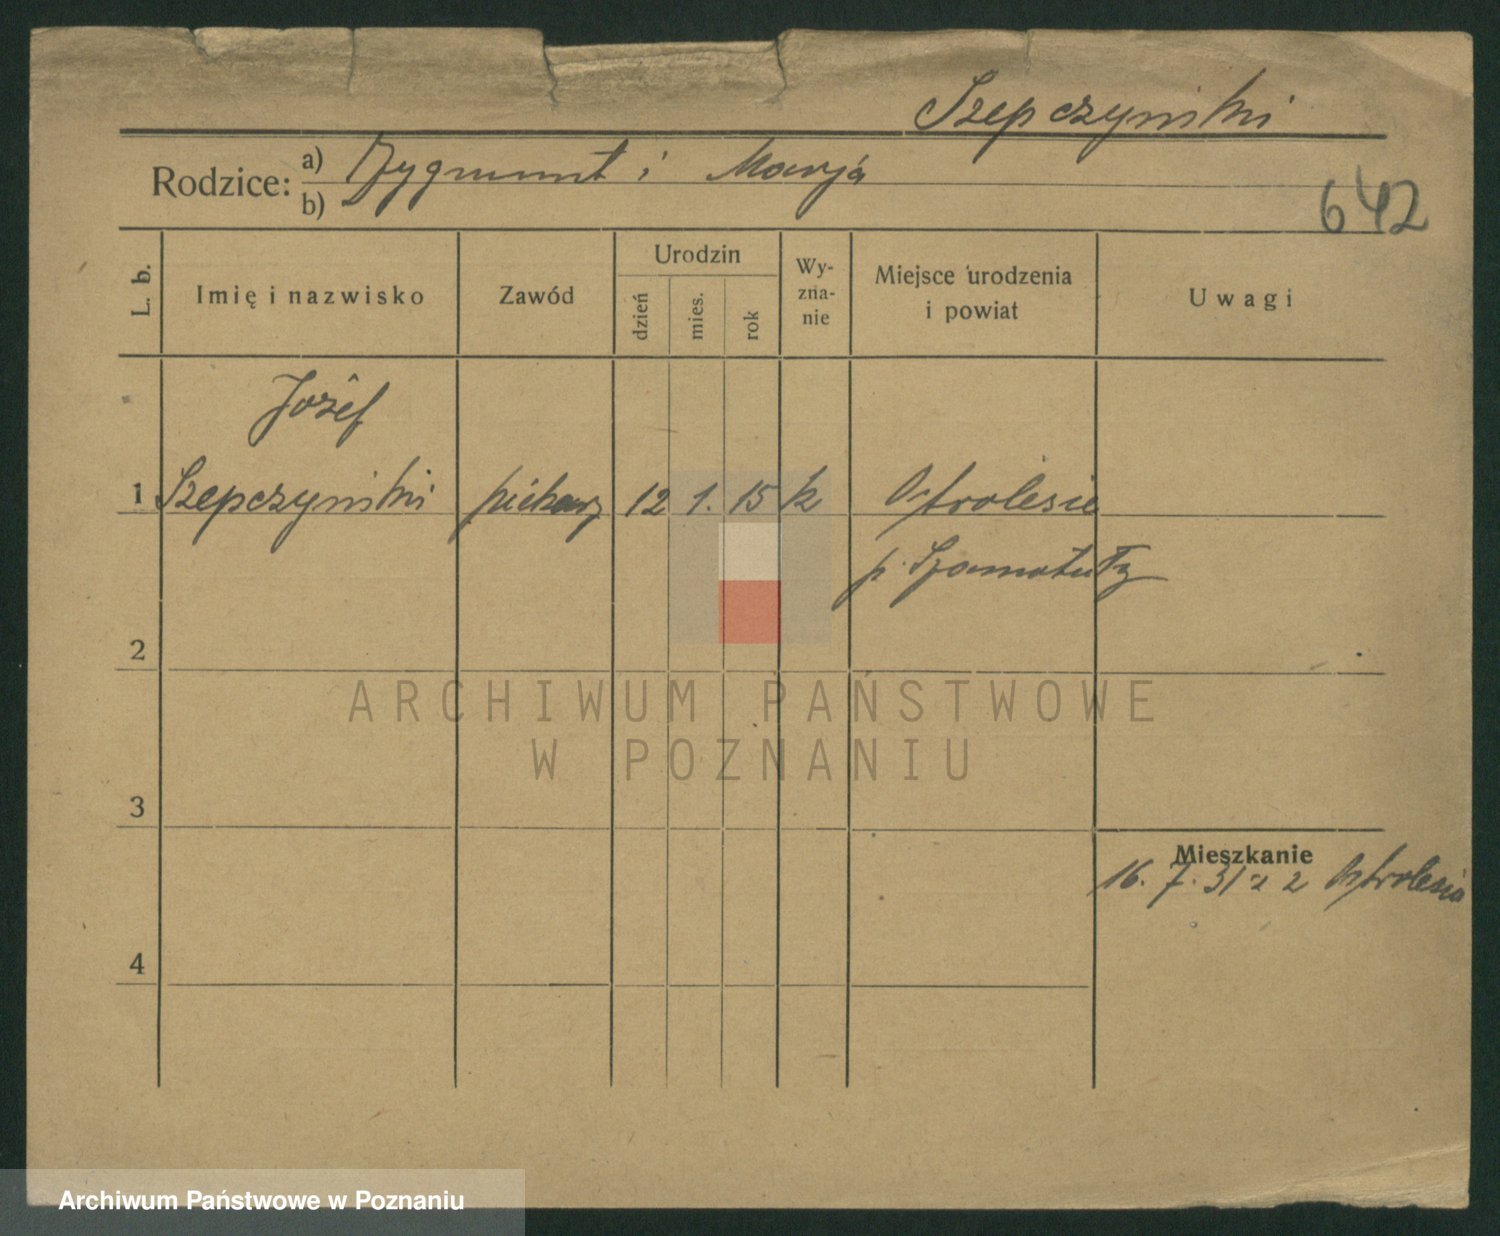 Szepczyński
Rodzice: a) Zygmunt i Marja
b)
642
L. b.
Imię i nazwisko
Zawód
Urodzin
dzień
mies.
rok
Wy-
zna-
nie
Miejsce urodzenia
i powiat
Uwagi
Józef
1 Szepczyński piekarz 12 1. 15 k Ostrolesie
p. Szamotuły
2
ARCHIWUM PAŃSTWOWE
W POZNANIU
3
Mieszkanie
16. 7. 31 z Ostrolesia
4
Archiwum Państwowe w Poznaniu